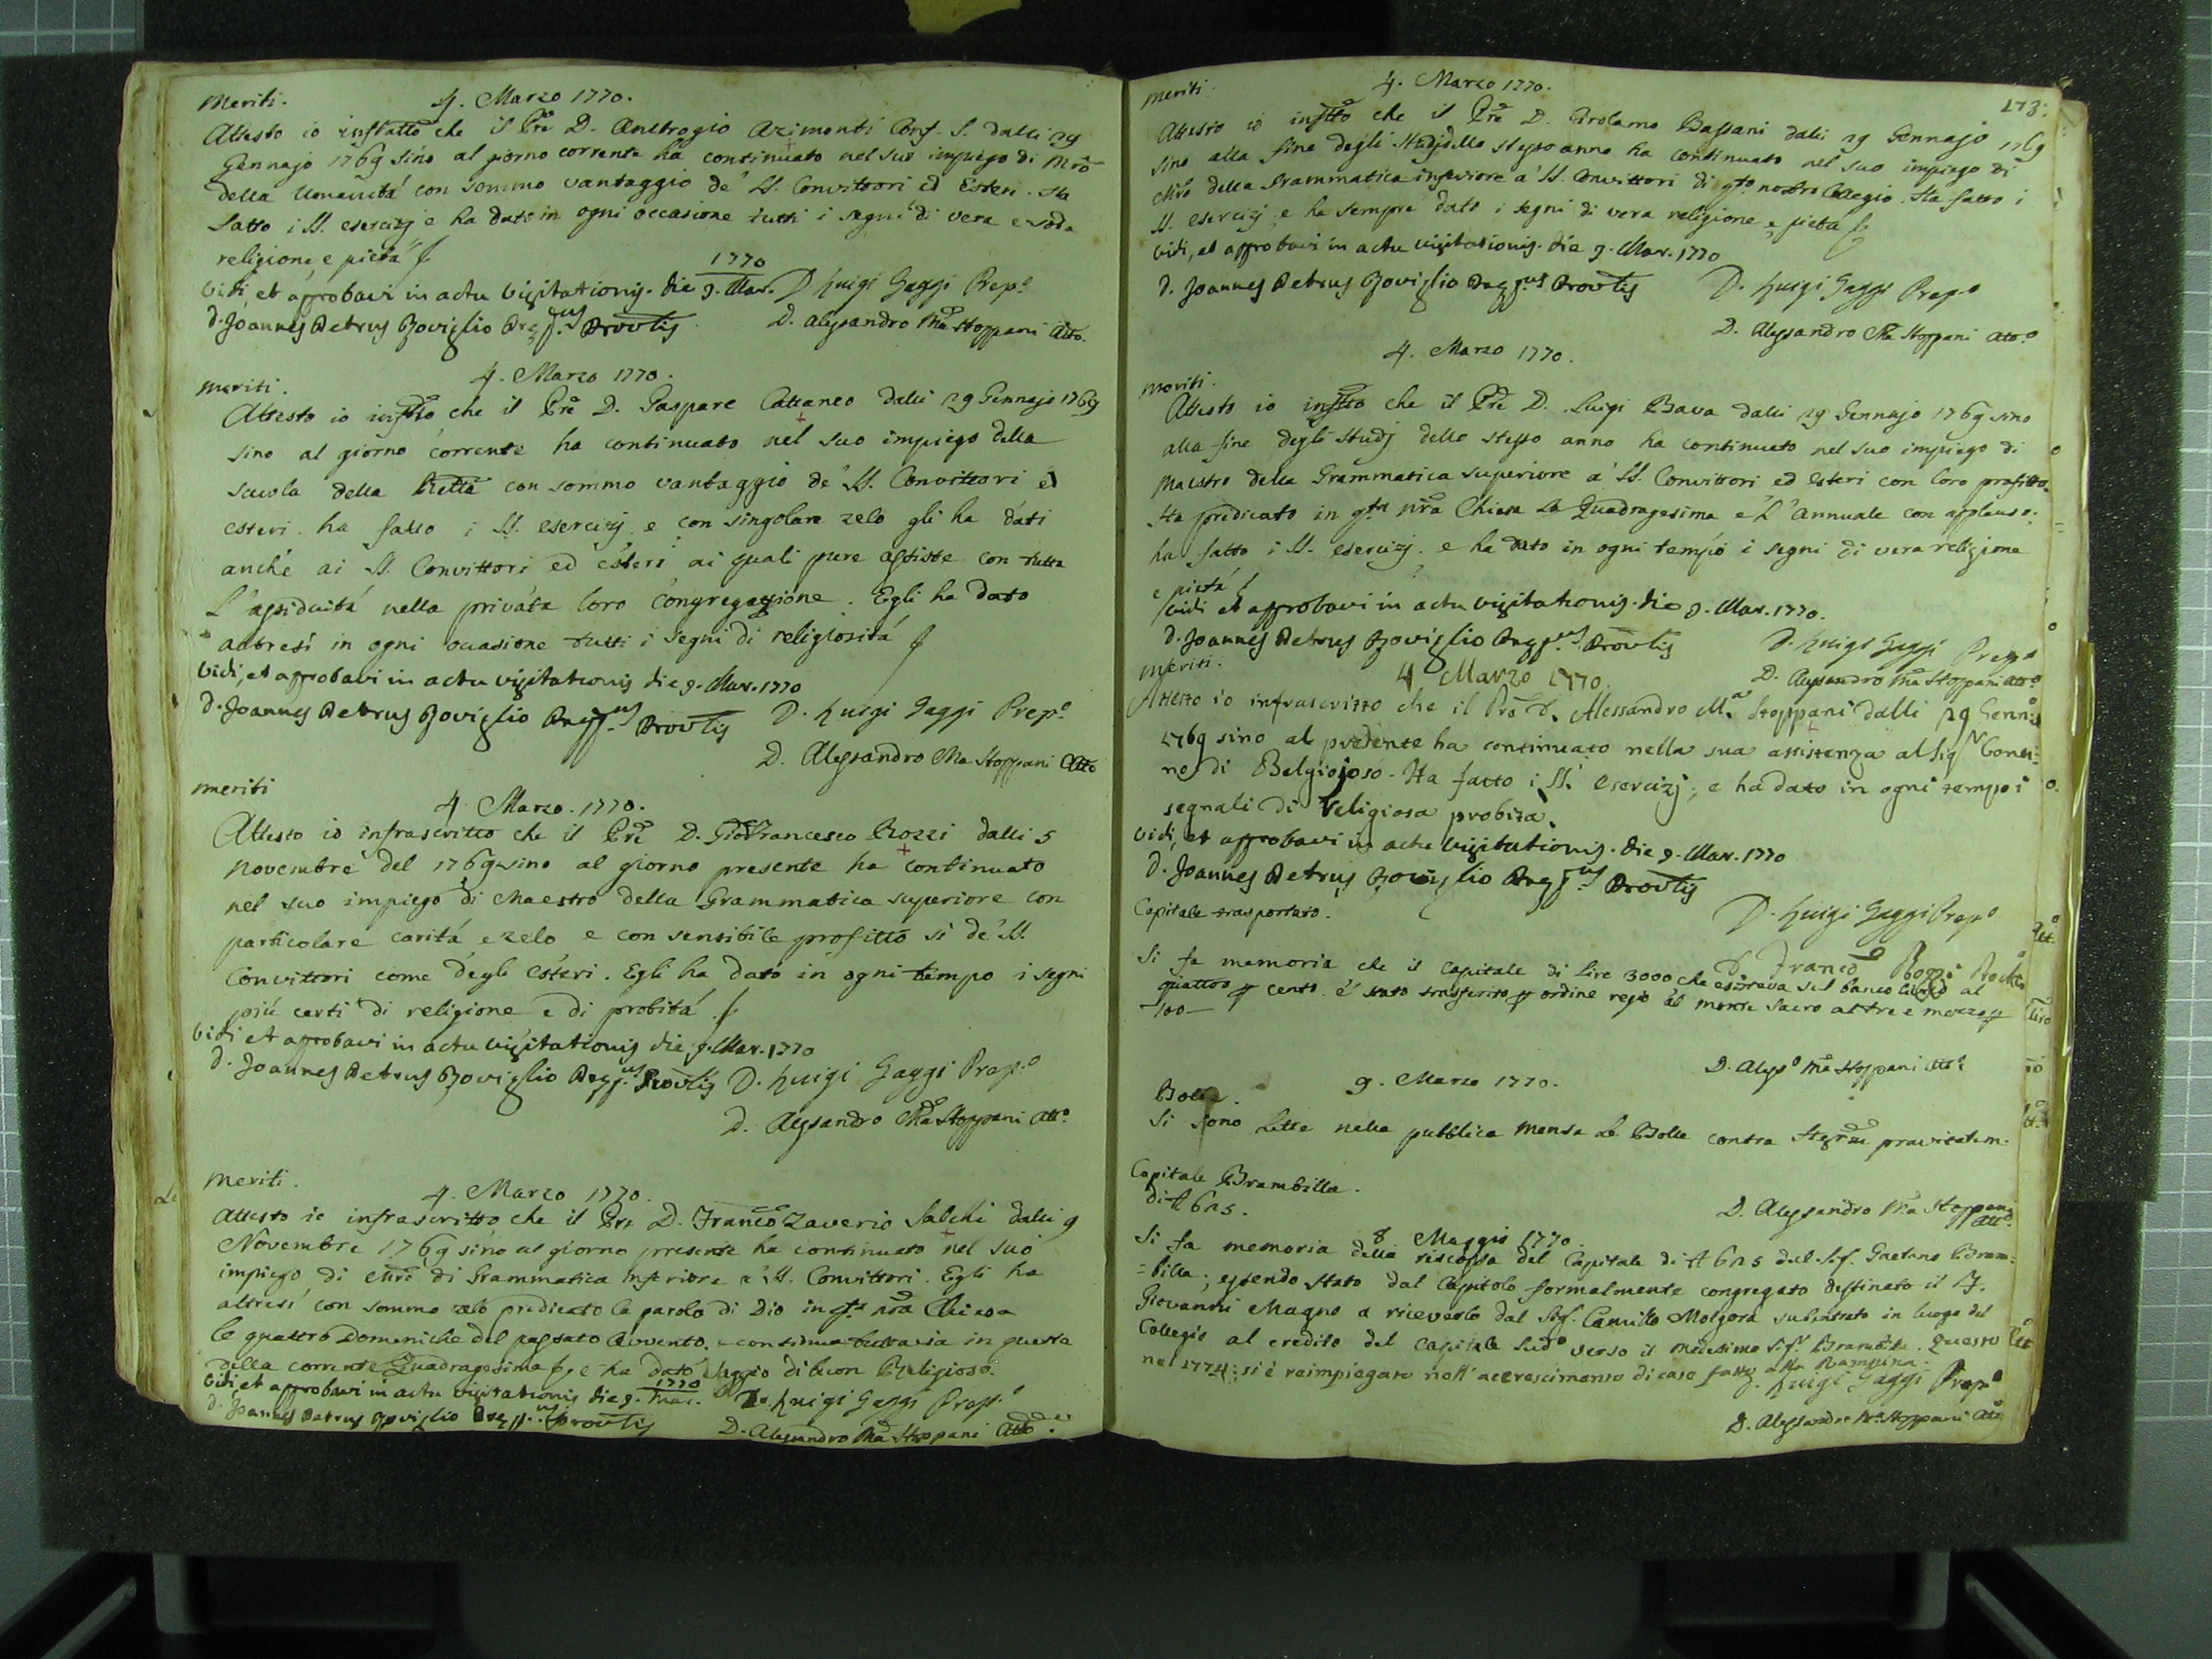 Meriti. 4. Marzo 1770.
Attesto io infratto che il Pre D. Ambrogio Arimonti Conf. S. dalli 29
Gennajo 1769 sino al giorno corrente ha continuato nel suo impiego di Mro
della Umanitá con sommo vantaggio de' SS. Convittori ed Esteri. Ha
fatto i SS. esercizj e ha dati in ogni occasione tutti i segni di vera e soda
religione e pietá
Vidi, et approbavi in actu visitationis. die 9. Mar. 1770 D. Luigi Gaggi Prepo
D. Joannes Petrus Roviglio Prep.us Provlis D. Alessandro Ma Stoppani Atto.
Meriti. 4. Marzo 1770.
Attesto io infrtto che il Pre D. Gaspare Cattaneo dalli 29 Gennajo 1769
sino al giorno corrente ha continuato nel suo impiego della
scuola della Retta con sommo vantaggio de' SS. Convittori ed
esteri. ha fatto i SS. esercizj e con singolare zelo gli ha dati
anche ai SS. Convittori ed esteri ai quali pure assiste con tutta
l'assiduitá nella privata loro congregazione. Egli ha dato
altresí in ogni occasione tutti i segni di religiositá
Vidi, et approbavi in actu visitationis die 9. Mar. 1770
D. Joannes Petrus Roviglio Prep.us Provlis D. Luigi Gaggi Prepo
D. Alessandro Ma Stoppani Atto
meriti
4. Marzo. 1770.
Attesto io infrascritto che il Pre D. Gio Francesco Rozzi dalli 5
Novembre del 1769 sino al giorno presente ha continuato
nel suo impiego di Maestro della Grammatica superiore con
particolare caritá e zelo e con sensibile profitto si de' SS.
Convittori come degli Esteri. Egli ha dato in ogni tempo i segni
piú certi di religione e di probitá
Vidi et approbavi in actu visitationis die 9. Mar. 1770
D. Joannes Petrus Roviglio Prep.us Provlis D. Luigi Gaggi Prepo
D. Alessandro Ma Stoppani Atto
Meriti.
4. Marzo 1770.
Attesto io infrascritto che il Pre D. Franco Zaverio Salchi dalli 9
Novembre 1769 sino al giorno presente ha continuato nel suo
impiego di Mro di Grammatica inferiore a' SS. Convittori. Egli ha
altresí con sommo zelo predicato la parola di Dio in qta nra Chiesa
le quattro Domeniche del passato Avvento, e continua tuttavia in queste
della corrente Quadragesima, e ha dato saggio di buon Religioso.
Vidi, et approbavi in actu visitationis die 9. Mar. 1770 D. Luigi Gaggi Prepo
D. Joannes Petrus Roviglio Prep.us Provlis D. Alessandro Ma Stoppani Atto.
Meriti. 4. Marzo 1770. 173.
Attesto io infrtto che il Pre D. Girolamo Bassani dalli 29 Gennajo 1769
sino alla fine degli studj dello stesso anno ha continuato nel suo impiego di
Mro della Grammatica inferiore a' SS. Convittori di qto nostro Collegio. Ha fatto i
SS. esercizj, e ha sempre dato i segni di vera religione e pietá
Vidi, et approbavi in actu visitationis. die 9. Mar. 1770
D. Joannes Petrus Roviglio Prep.us Provlis D. Luigi Gaggi Prepo
D. Alessandro Ma Stoppani Atto
4. Marzo 1770.
Meriti.
Attesto io infrtto che il Pre D. Luigi Bava dalli 29 Gennajo 1769 sino
alla fine degli studj dello stesso anno ha continuato nel suo impiego di
Maestro della Grammatica superiore a' SS. Convittori ed esteri con loro profitto.
Ha predicato in qta nra Chiesa la Quadragesima e l'Annuale con applauso:
ha fatto i SS. esercizj. e ha dato in ogni tempo i segni di vera religione
e pietá
Vidi et approbavi in actu visitationis. die 9. Mar. 1770.
D. Joannes Petrus Roviglio Prep.us Provlis D. Luigi Gaggi Prepo
Meriti. 4 Marzo 1770. D. Alessandro Ma Stoppani Atto
Attesto io infrascritto che il Pre D. Alessandro Ma Stoppani dalli 29 Genn.o
1769 sino al presente ha continuato nella sua assistenza al Sigr Conti-
no di Belgiojoso. Ha fatto i SS. esercizj, e ha dato in ogni tempo i
segnali di religiosa probitá.
Vidi, et approbavi in actu visitationis. die 9. Mar. 1770
D. Joannes Petrus Roviglio Prep.us Provlis
D. Luigi Gaggi Prepo
Capitale trasportato.
D. Franco Rozzi
Si fa memoria che il capitale di lire 3000 che esisteva sul banco al
quattro per cento é stato trasferito per ordine regio al monte sacro al tre e mezzo per
100
D. Alesso Ma Stoppani Atto
9. Marzo 1770.
Bolle.
Si sono lette nella pubblica mensa le Bolle contra pravitatem.
D. Alessandro Ma Stoppani
Atto.
Capitale Brambilla.
di
8 Maggio 1770.
Si fa memoria della riscossa del Capitale di del Sig. Gaetano Bram-
billa; essendo stato dal Capitolo formalmente congregato destinato il
Giovanni Magno a riceverlo dal Sig. Camillo Molgora subentrato in luogo del
Collegio al credito del capitale sudo verso il medesimo Sigr Brambilla. Questo
nel 1774: si é reimpiegato nell'accrescimento di case fatto alla Rampina.
D. Luigi Gaggi Prepo
D. Alessandro Ma Stoppani Atto